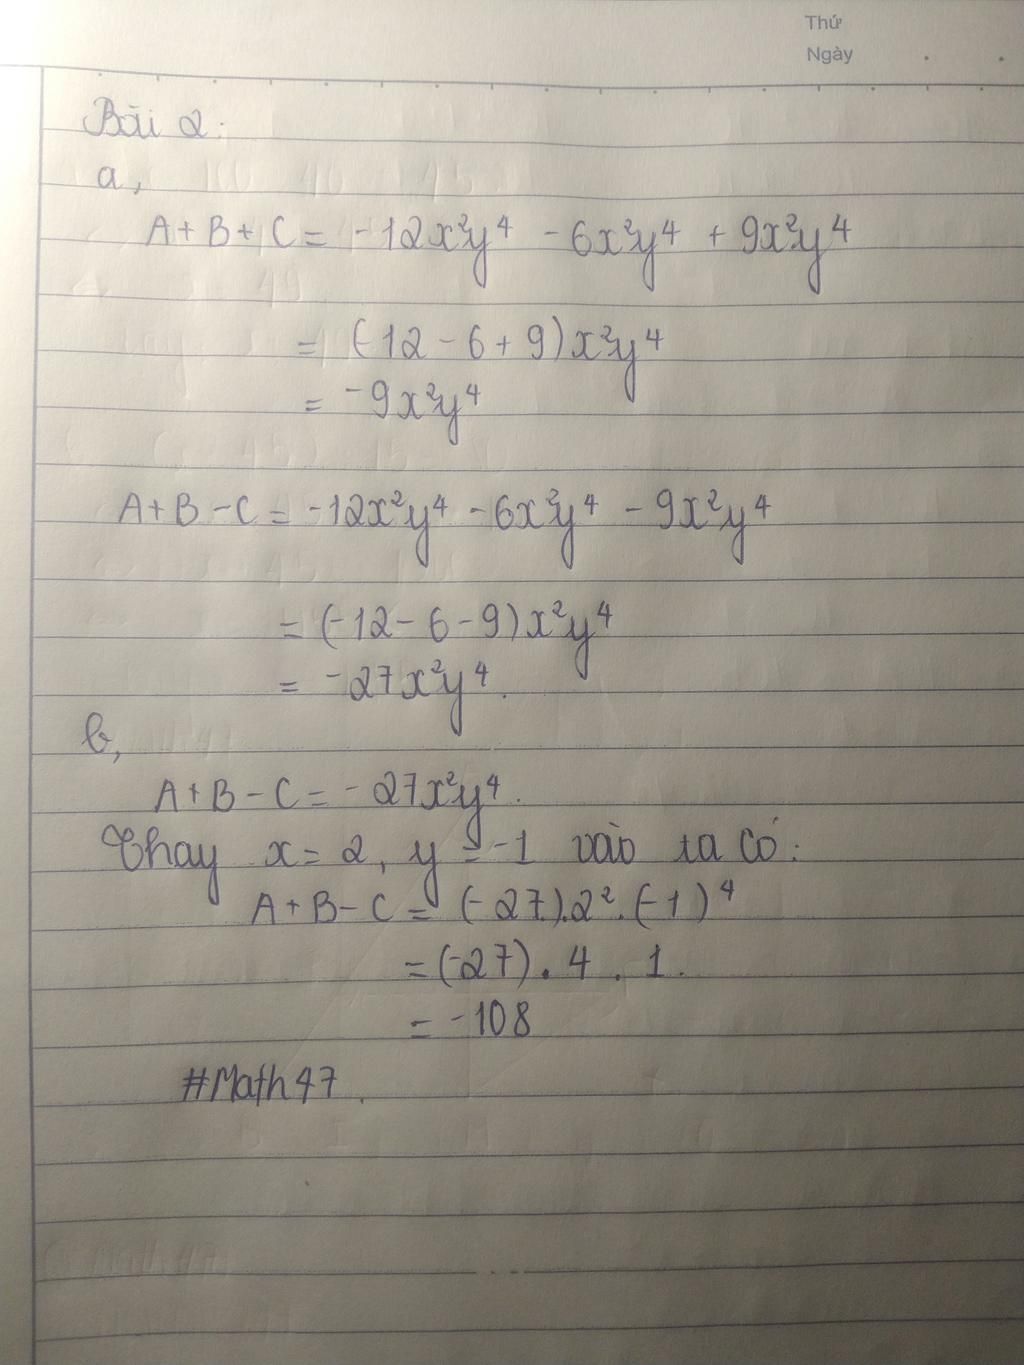 Thứ
Ngày
Bài 2:
a,
A+B+C = -12x²y⁴ - 6x²y⁴ + 9x²y⁴
= (-12 - 6 + 9)x²y⁴
= -9x²y⁴
A+B-C = -12x²y⁴ - 6x²y⁴ - 9x²y⁴
= (-12 - 6 - 9)x²y⁴
= -27x²y⁴.
b,
A+B-C = -27x²y⁴.
Thay x = 2, y = -1 vào ta có:
A+B-C = (-27).2².(-1)⁴
= (-27) . 4 . 1.
= -108
#Math47.